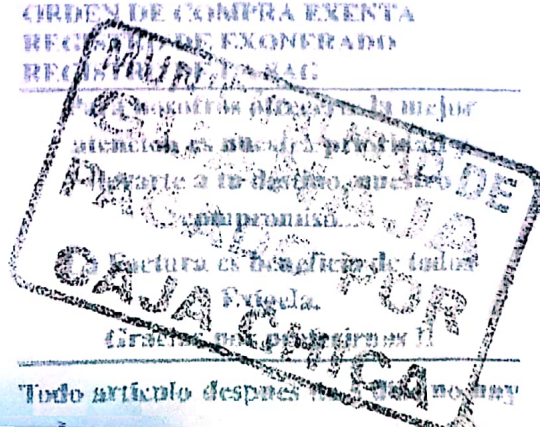 ORDEN DE COMPRA EXENTA
REGISTRO DE EXONERADO
REGISTRO DE LA SAG
Para nosotros ofrecerte la mejor
atencion es nuestra prioridad y
llevarte a tu destino, nuestro
compromiso....
La Factura es beneficio de todos
Exijela.
Gracias por preferirnos !!
Todo articulo despues no hay
DE
CAJA
PAGADO POR
CAJA CHICA